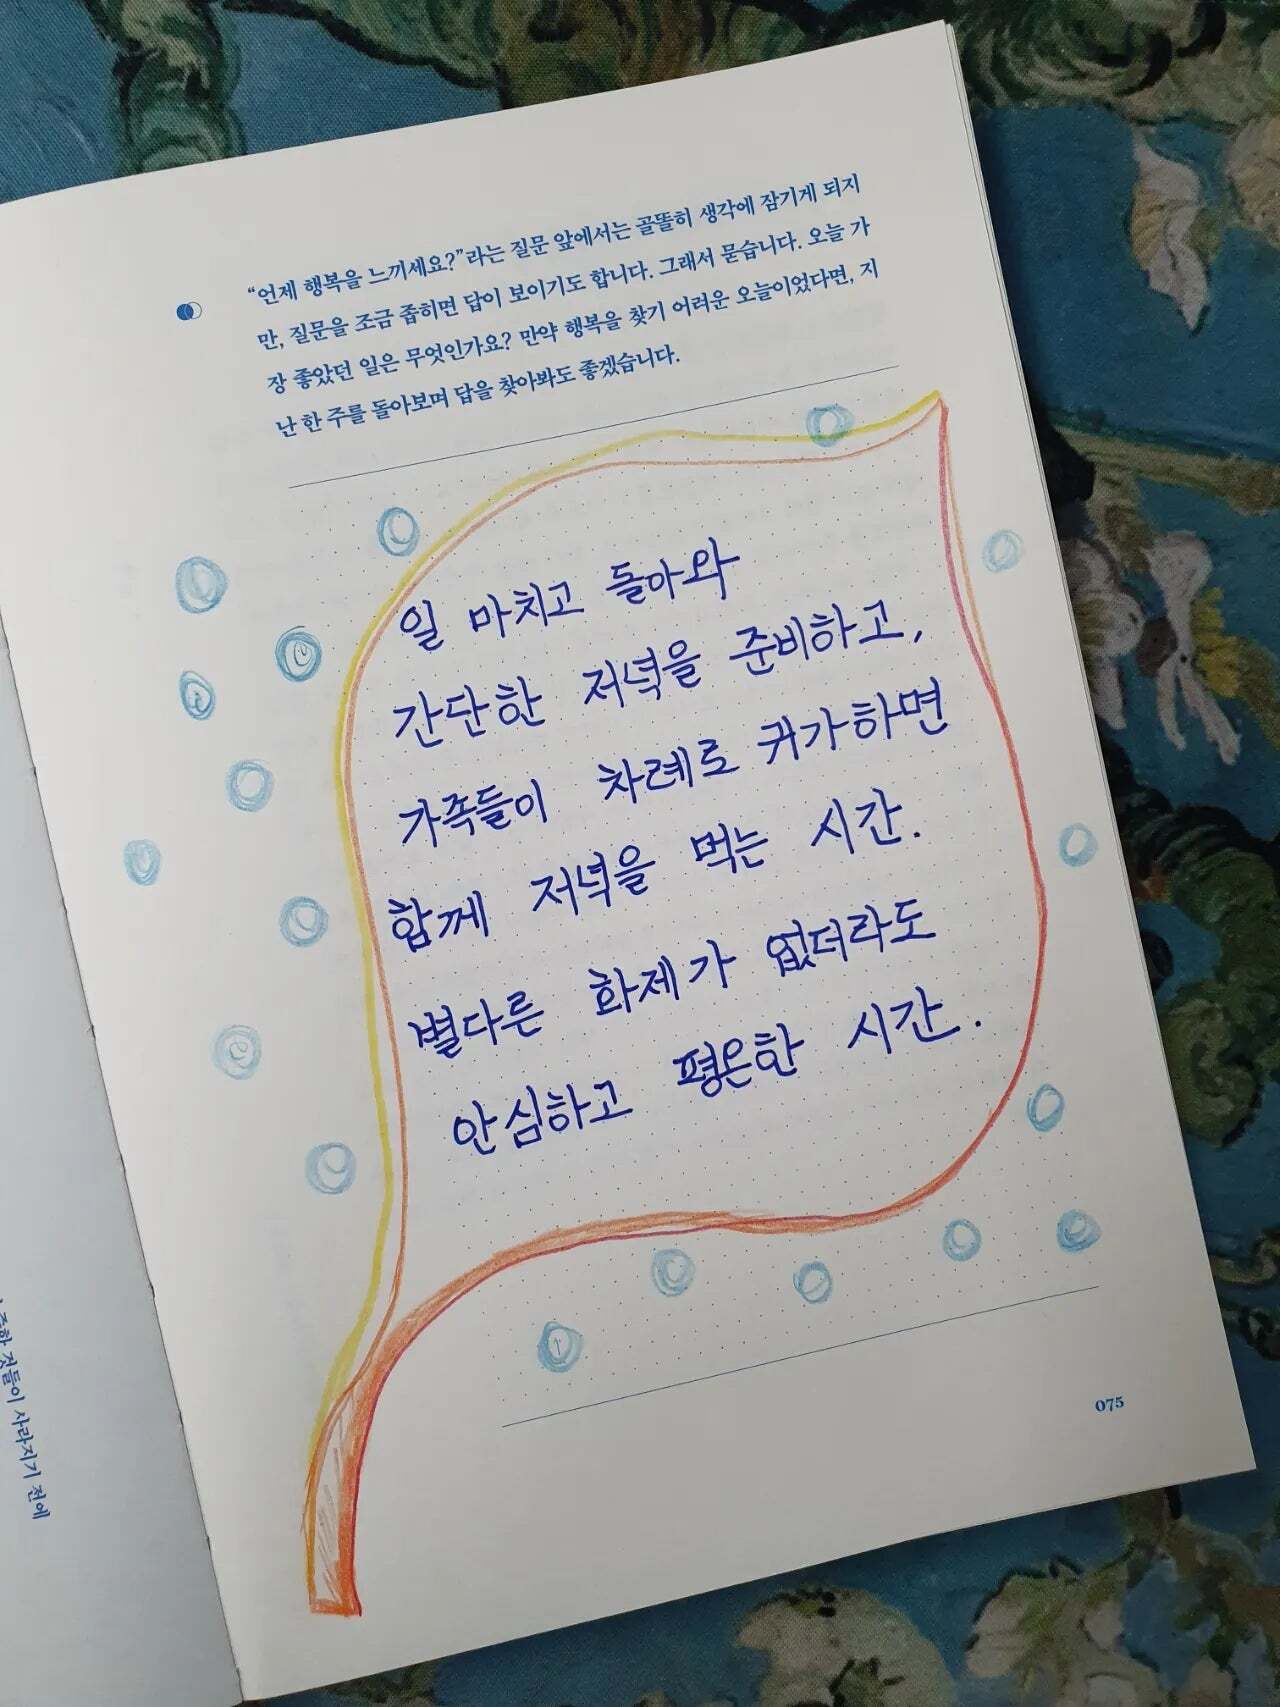 "언제 행복을 느끼세요?"라는 질문 앞에서는 골똘히 생각에 잠기게 되지
만, 질문을 조금 좁히면 답이 보이기도 합니다. 그래서 묻습니다. 오늘 가
장 좋았던 일은 무엇인가요? 만약 행복을 찾기 어려운 오늘이었다면, 지
난 한 주를 돌아보며 답을 찾아봐도 좋겠습니다.
일 마치고 돌아와
간단한 저녁을 준비하고,
가족들이 차례로 귀가하면
함께 저녁을 먹는 시간.
별다른 화제가 없더라도
안심하고 평온한 시간.
075
것들이 사라지기 전에